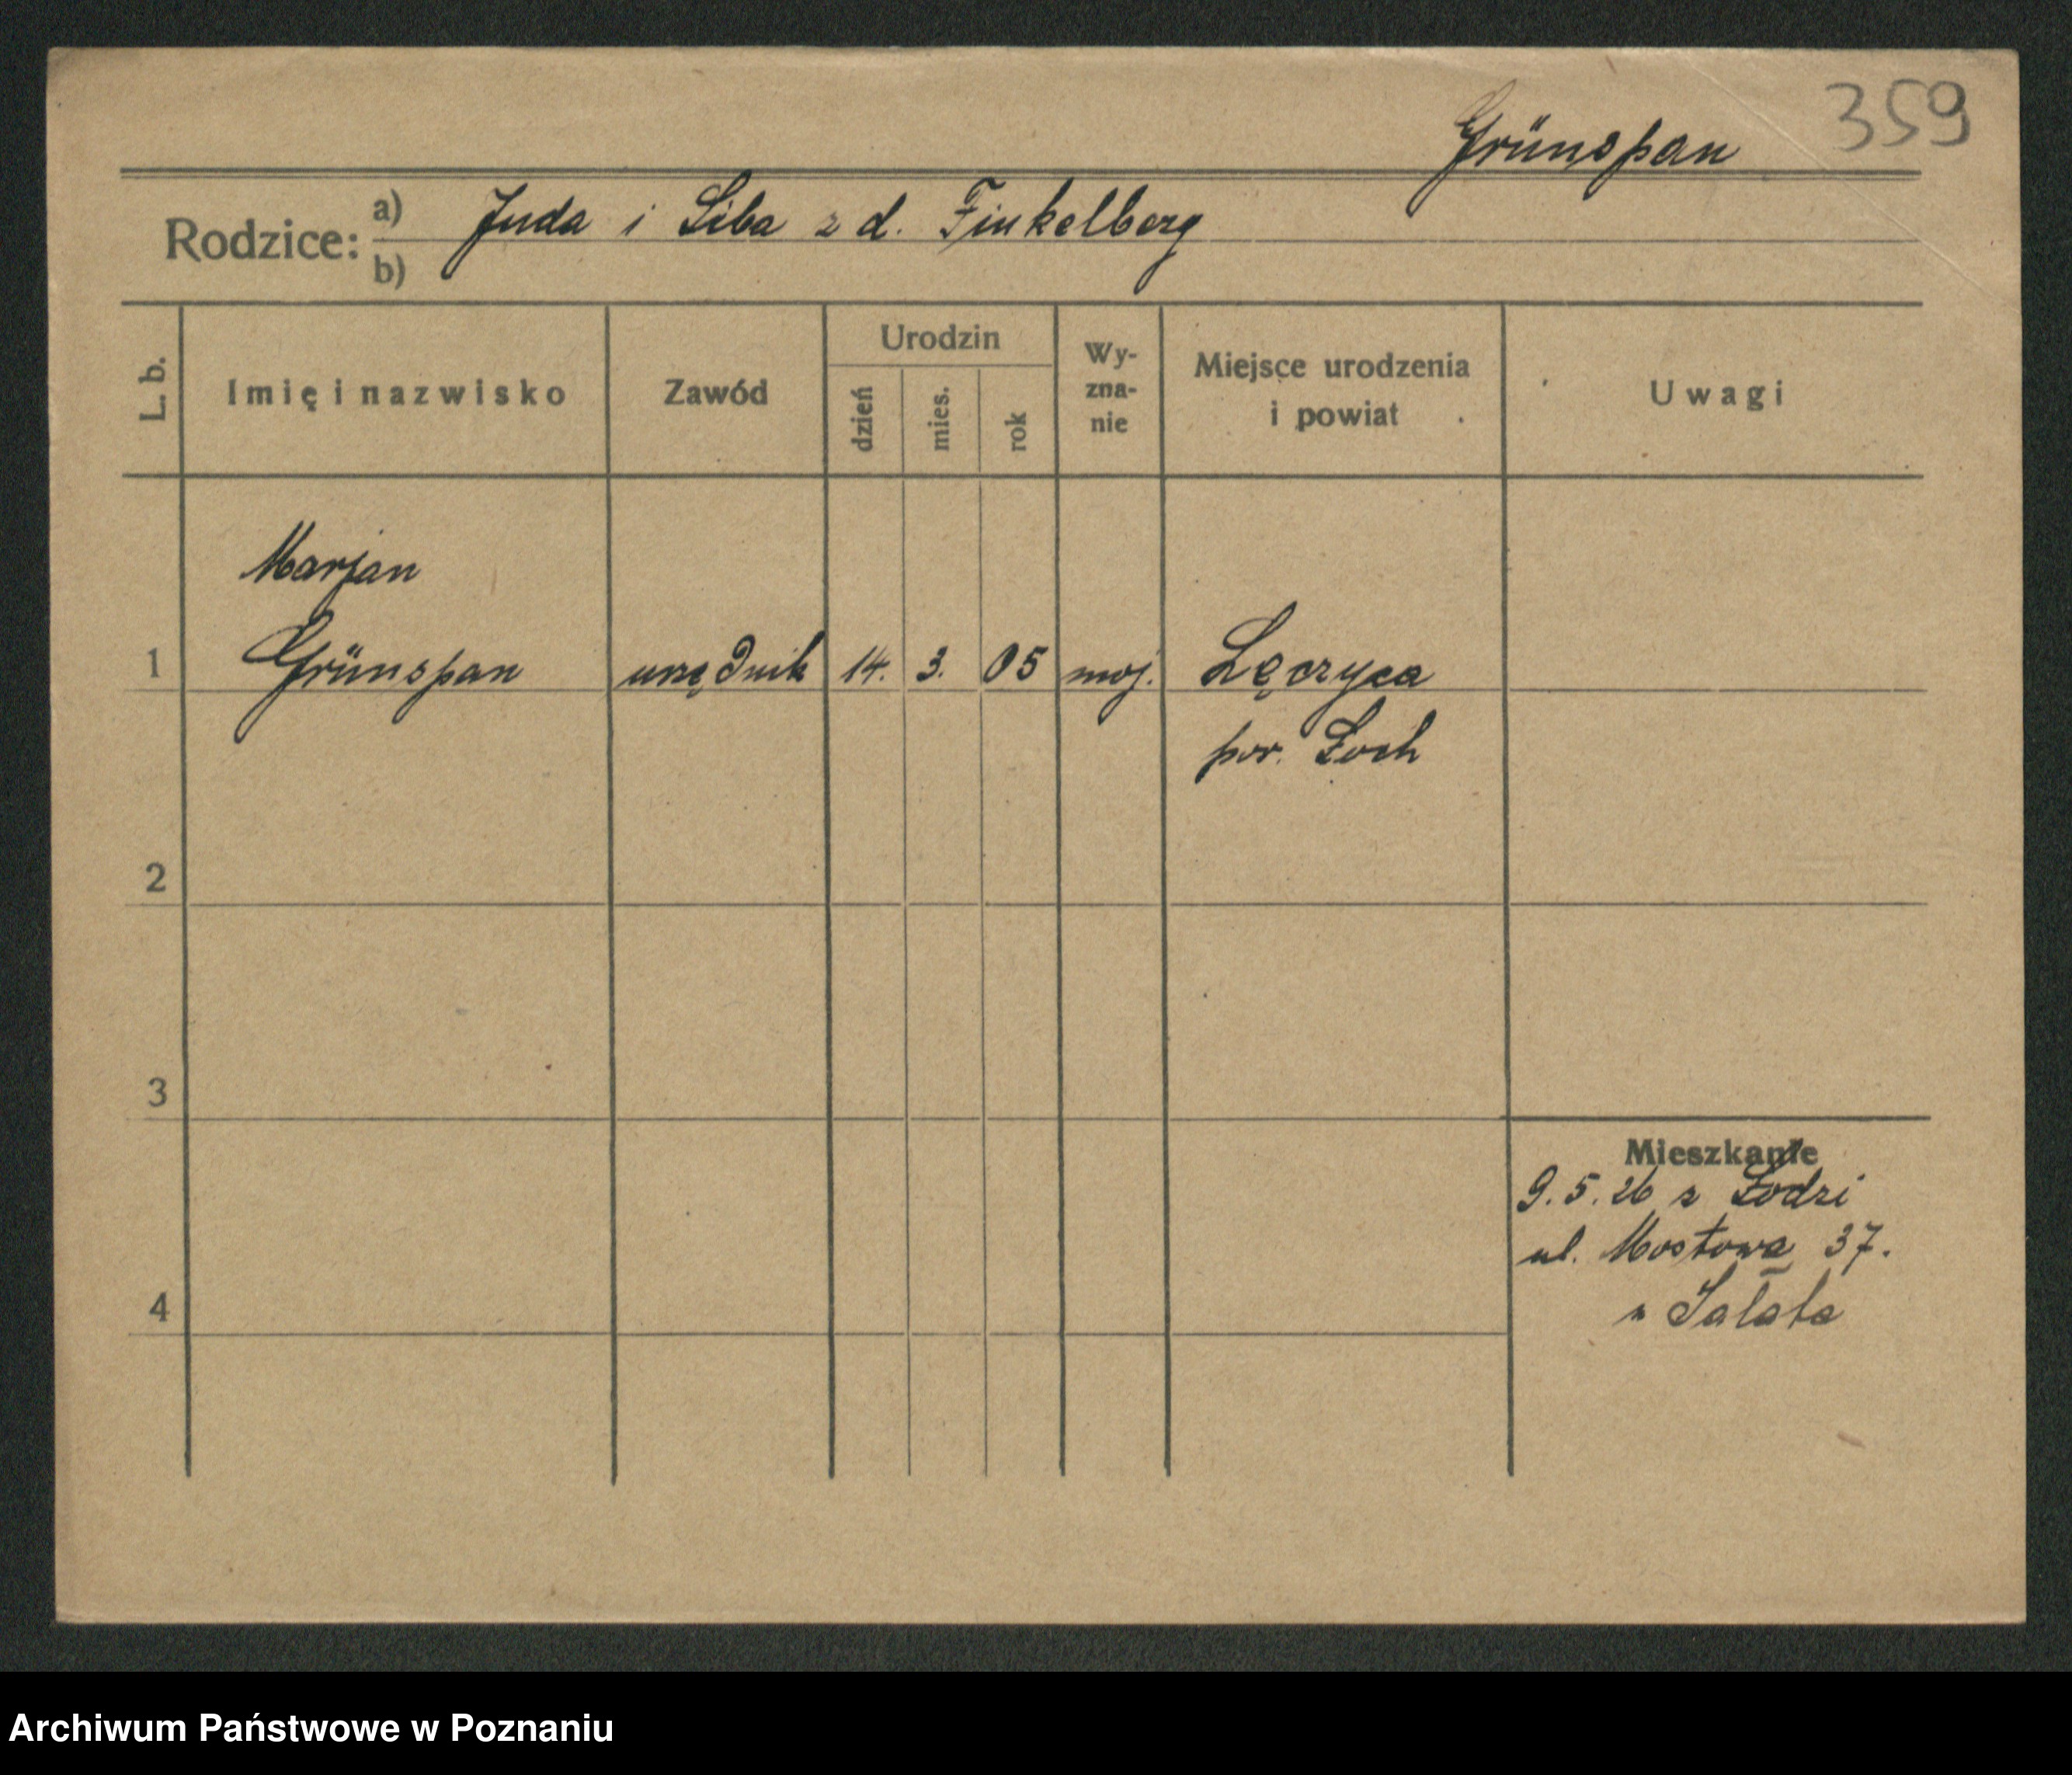 359
Grünspan
Rodzice: a) Juda i Liba z d. Finkelberg
b)
L. b.
Imię i nazwisko
Zawód
Urodzin
dzień
mies.
rok
Wy-
zna-
nie
Miejsce urodzenia
i powiat
Uwagi
Marjan
1 Grünspan urzędnik 14. 3. 05 moj. Łęczyca
pow. Loch
2
3
4
Mieszkanie
9.5.26 z Łodzi
ul. Mostowa 37.
Sałata
Archiwum Państwowe w Poznaniu